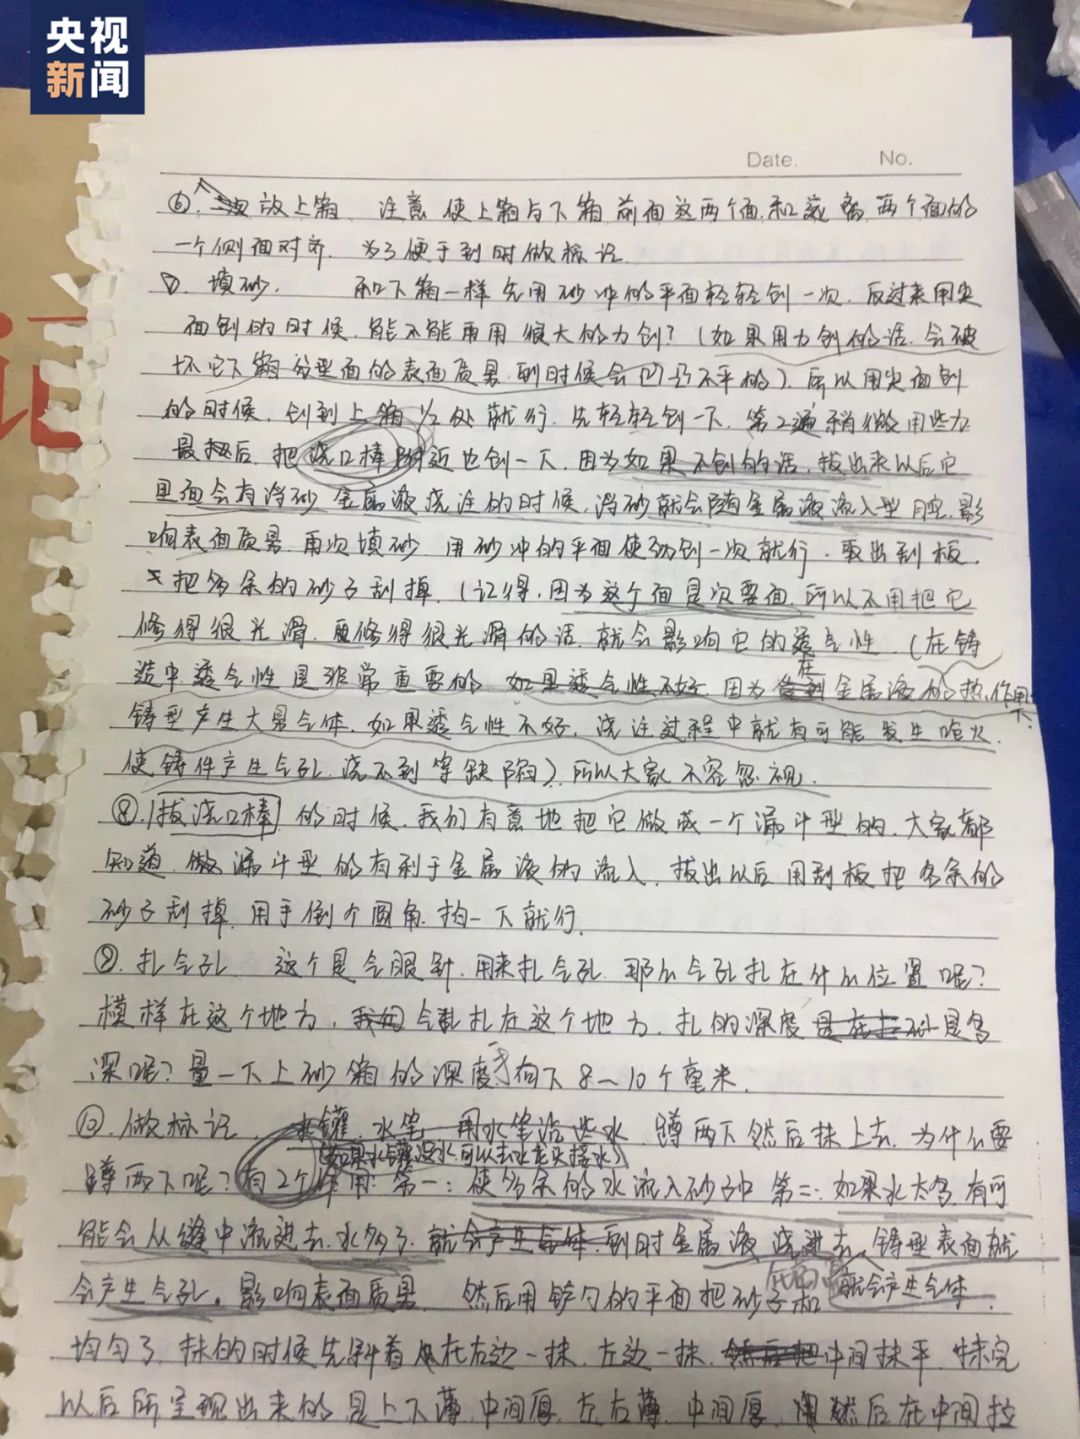 央视
新闻
Date. No.
⑥. 放上箱. 注意 使上箱与下箱 前面这两个面,和 两个面的
一个侧面对齐. 为了便于到时做标记.
⑦. 填砂. 和下箱一样 先用砂冲的平面轻轻创一次. 反过来用尖
面创的时候, 能不能再用很大的力创? (如果用力创的话, 会破
坏它下箱分型面的表面质量, 到时候会凹凸不平的). 所以用尖面创
的时候, 创到上箱 1/2 处就行. 先轻轻创一下. 第2遍稍微用些力
最后, 把浇口棒附近也创一下, 因为如果不创的话, 拔出来以后它
里面会有浮砂 金属液浇注的时候, 浮砂就会随金属液流入型腔,影
响表面质量. 再次填砂 用砂冲的平面使劲创一次就行. 取出刮板,
把多余的砂子刮掉. (记得, 因为这个面是次要面, 所以不用把它
修得很光滑. 修得很光滑的话, 就会影响它的透气性. (在铸
造中透气性是非常重要的 如果透气性不好, 因为在金属液的热作用下
铸型产生大量气体, 如果透气性不好, 浇注过程中就有可能发生呛火
使铸件产生气孔, 浇不到等缺陷). 所以大家不容忽视.
⑧. 拔浇口棒 的时候, 我们有意地把它做成一个漏斗型的, 大家都
知道, 做漏斗型的有利于金属液的流入, 拔出以后用刮板把多余的
砂子刮掉, 用手倒个圆角, 拍一下就行.
⑨. 扎气孔 这个是气眼针, 用来扎气孔, 那么气孔扎在什么位置呢?
模样在这个地方, 气孔扎在这个地方, 扎的深度 是多
深呢? 量一下上砂箱的深度, 向下8~10个毫米.
⑩. 做标记 水罐, 水笔 用水笔沾些水 蹲两下然后抹上去, 为什么要
(如果水罐没水可以去水龙头接水)
蹲两下呢? 有2个作用: 第一: 使多余的水流入砂子中 第二: 如果水太多, 有可
能会从缝中流进去, 水多了, 就会产生气体, 到时金属液浇进去, 铸型表面就
会产生气孔. 影响表面质量. 然后用铲勺的平面把砂子和 就会产生气体.
均匀了, 抹的时候先斜着 在右边一抹, 左边一抹, 中间抹平, 抹完
以后所呈现出来的是上下薄, 中间厚, 左右薄, 中间厚, 然后在中间拉